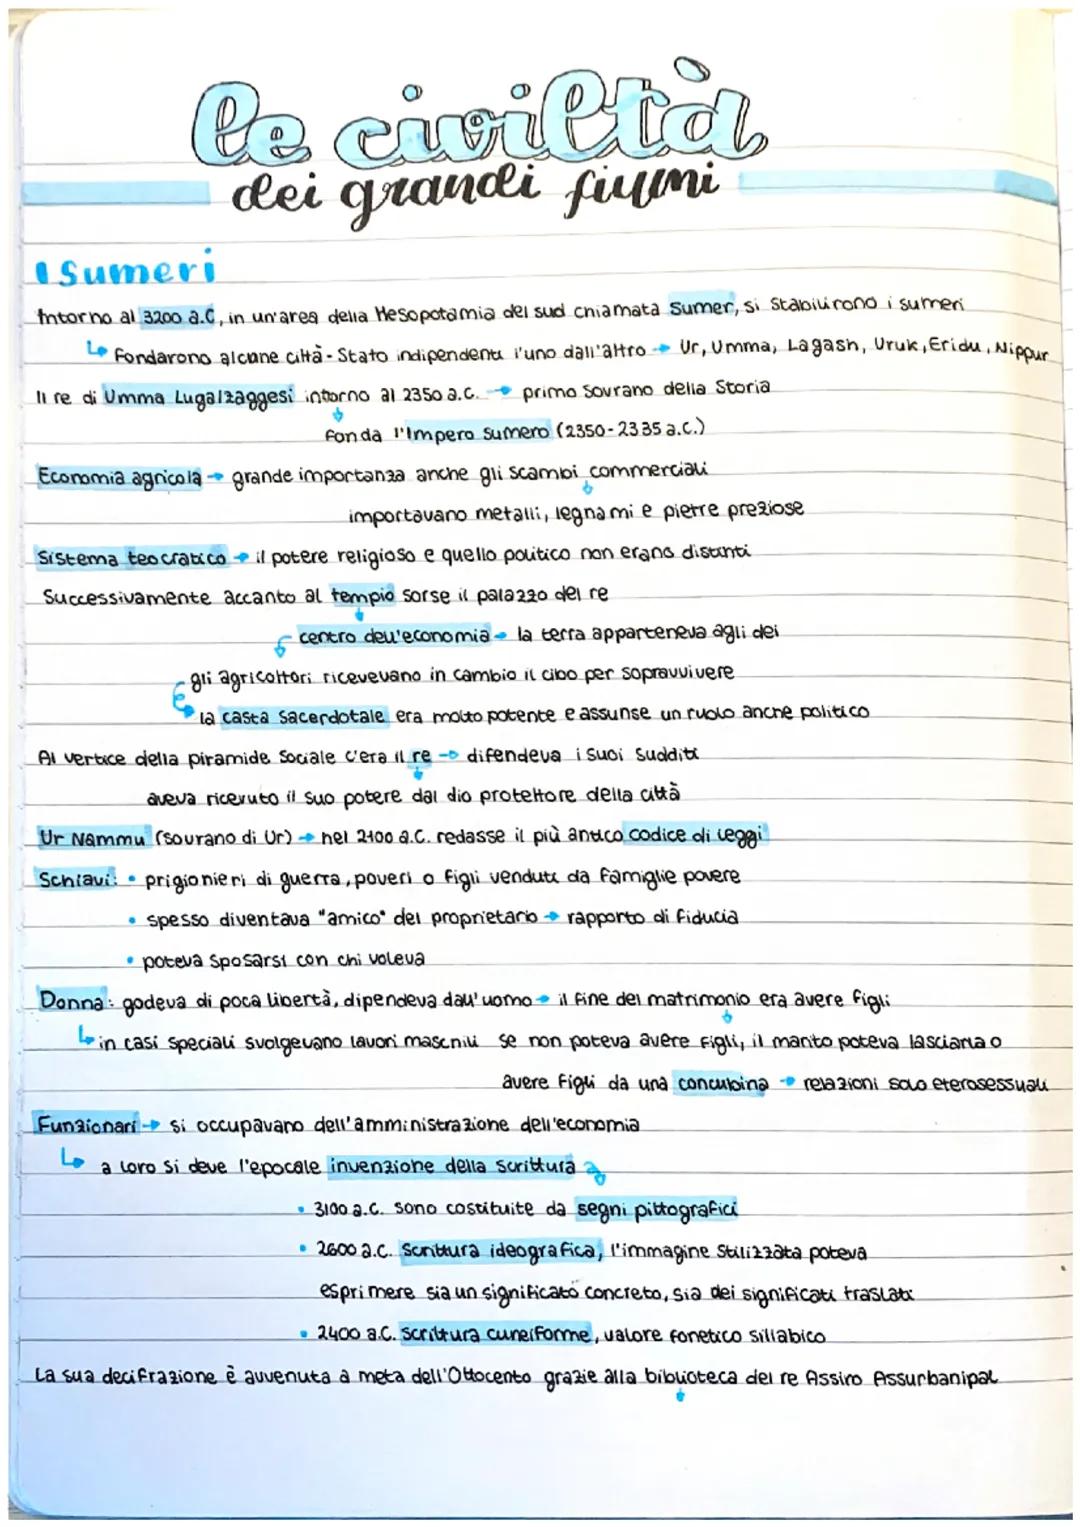 le civiltà
dei grandi fiumi
I Sumeri
Intorno al 3200 a.C, in un'area della Mesopotamia del sud chiamata Sumer, si stabilirono i sumeri
↳ Fondarono alcune città-Stato indipendenti l'uno dall'altro → Ur, Umma, Lagash, Uruk, Eridu, Nippur
Il re di Umma Lugalzaggesi intorno al 2350 a.C. → primo sovrano della Storia
fonda l'Impero Sumero (2350-2335 a.C.)
Economia agricola → grande importanza anche gli scambi commerciali
importavano metalli, legnami e pietre preziose
Sistema teocratico → il potere religioso e quello politico non erano distinti
Successivamente accanto al tempio sorse il palazzo del re
centro dell'economia → la terra apparteneva agli dei
gli agricoltori ricevevano in cambio il cibo per sopravvivere
la casta sacerdotale era molto potente e assunse un ruolo anche politico
Al vertice della piramide sociale c'era il re → difendeva i suoi sudditi
aveva ricevuto il suo potere dal dio protettore della città
Ur Nammu (sovrano di Ur) → nel 2100 a.C. redasse il più antico codice di leggi
Schiavi: • prigionieri di guerra, poveri o figli venduti da famiglie povere
• spesso diventava "amico" del proprietario → rapporto di fiducia
• poteva sposarsi con chi voleva
Donna: godeva di poca libertà, dipendeva dall'uomo → il fine del matrimonio era avere figli
↳ in casi speciali svolgevano lavori maschili se non poteva avere figli, il marito poteva lasciarla o
avere figli da una concubina → relazioni solo eterosessuali
Funzionari → si occupavano dell'amministrazione dell'economia
↳ a loro si deve l'epocale invenzione della scrittura
• 3100 a.C. sono costituite da segni pittografici
• 2600 a.C. scrittura ideografica, l'immagine stilizzata poteva
esprimere sia un significato concreto, sia dei significati traslati
• 2400 a.C. scrittura cuneiforme, valore fonetico sillabico
La sua decifrazione è avvenuta a metà dell'Ottocento grazie alla biblioteca del re Assiro Assurbanipal